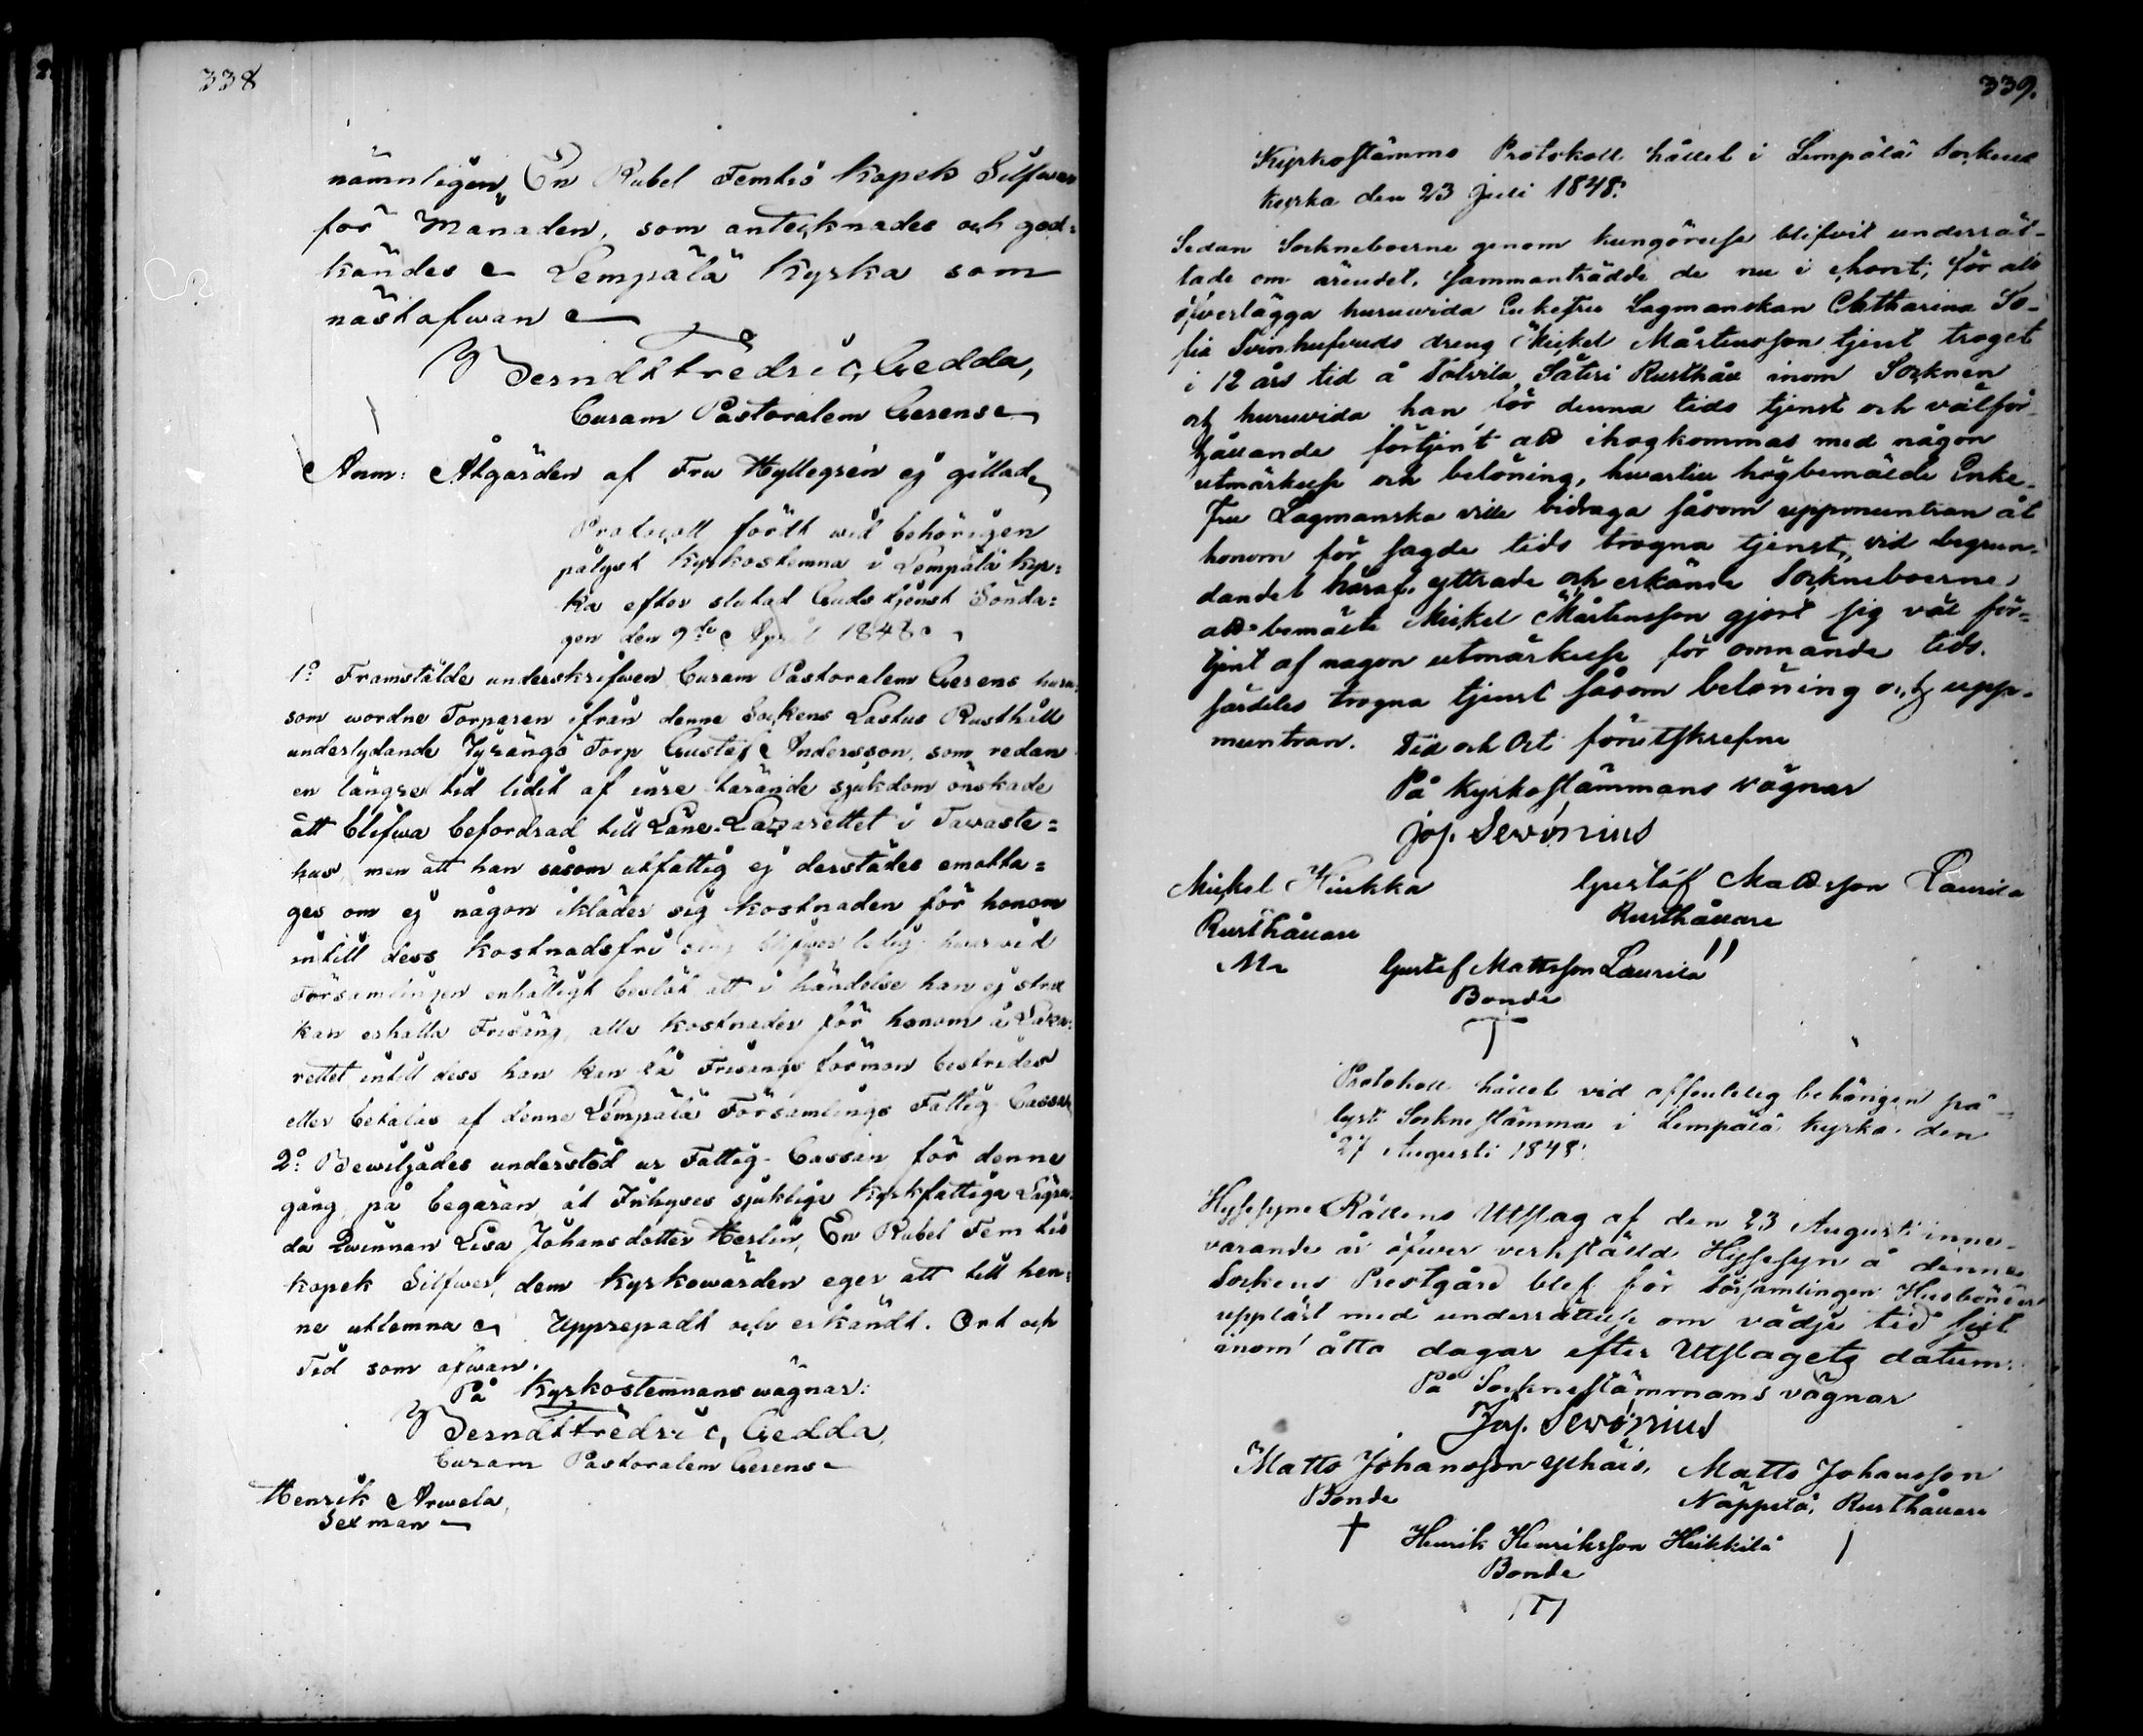 338
nämnligen, En Rubel Femtio kopek Silfwer
för Månaden, som antecknades och god=
kändes. Lempälä Kyrka som
näst ofwan
Berndt Fredric Gedda,
Curam Pastoralem Gerens
Anm: Åtgärden af Fru Hyllegrén ej gillad
Protocoll fördt wid behörigen
pålyst Kyrkostemna i Lempälä Kyr=
ka efter slutad Gudstjenst Sönda=
gen den 9de April 1848.
1o Framstälde underskrifwen Curam Pastoralem Gerens huru=
som wordne Torparen ifrån denne Sockens Lastus Rusthåll
underlydande Torp Gustaf Andersson, som redan
en längre tid lidit af inre tärande sjukdom önskade
att blifwa befordrad till Läne-Lazarettet i Tawaste=
hus, men att han såsom utfattig ej derstädes emotta=
ges om ej någon ikläder sig kostnaden för honom
intill dess kostnadsfri säng blifwer ledig hwarwid
Församlingen enhälligt beslöt att i händelse han ej strax
kan erhålla Frisäng, alla kostnader för honom å Laza=
rettet intill dess han kan få Frisängs förmon bestrides
eller betalas af denne Lempälä Församlings Fattig-Cassa
2o Bewiljades understöd ur Fattig-Cassan för denne
gång, på begäran, åt Inhyses sjuklige Kyrkfattiga Lägra=
da Qwinnan Lisa Johansdotter Herlin, En Rubel Femtio
kopek Silfwer, dem Kyrkowärden eger att till hen=
ne utlemna. Upprepadt och erkändt. Ort och
Tid som ofwan.
På Kyrkostemnans wägnar:
Berndt Fredric Gedda,
Curam Pastoralem Gerens
Henrik Arwela,
Sexman
339.
Kyrkostämmo Protokoll hållet i Lempälä Sockens
kyrka den 23 Juli 1848.
Sedan Sockneboerne genom kungörelse blifvit underrät-
tade om ärendet, sammanträdde de nu i  för att
öfverlägga huruvida Enkefru Lagmanskan Catharina So-
fia Svinhufvuds dreng Mickel Mårtensson tjent troget
i 12 års tid å Tolvila Säteri Rusthåll inom Socknen
och huruvida han för denna tids tjenst och välför-
hållande förtjent att ihogkommas med någon
utmärkelse och belöning, hwartill högbemälde Enke-
fru Lagmanska ville bidraga såsom uppmuntran åt
honom för sagde tids trogna tjenst, vid begrun-
dandet häraf yttrade och erkände Sockneboerne
att bemälte Mickel Mårtensson gjort sig väl för-
tjent af någon utmärkelse för omnände tids
färdeles trogna tjenst såsom belöning och upp-
muntran. Tid och Ort förutskrefne
På Kyrkostämmans vägnar
Jos. Servónius
Mickel Kiukka Gustaf Mattsson Laurila
Rusthållare Rusthållare
Gustaf Mattsson Laurila
Bonde
Protokoll hållet vid offentelig behörigen på-
lyst Sockne stämma i Lempälä kyrka den
27 Augusti 1848.
Husesyns Rättens Utslag af den 23 Augusti inne-
varande år öfwer verkstäld Husesyn å denne
Sockens Prestgård blef för församlingen Husbönder
uppläst med underrättelse om vädje tid sist
inom åtta dagar efter Utslagets datum:
På Sockne stämmans vägnar
Jos. Servónius
Matts Johansson Yrhäis, Matts Johansson
Bonde Näppilä, Rusthållare
Henrik Henriksson Heikkilä
Bonde